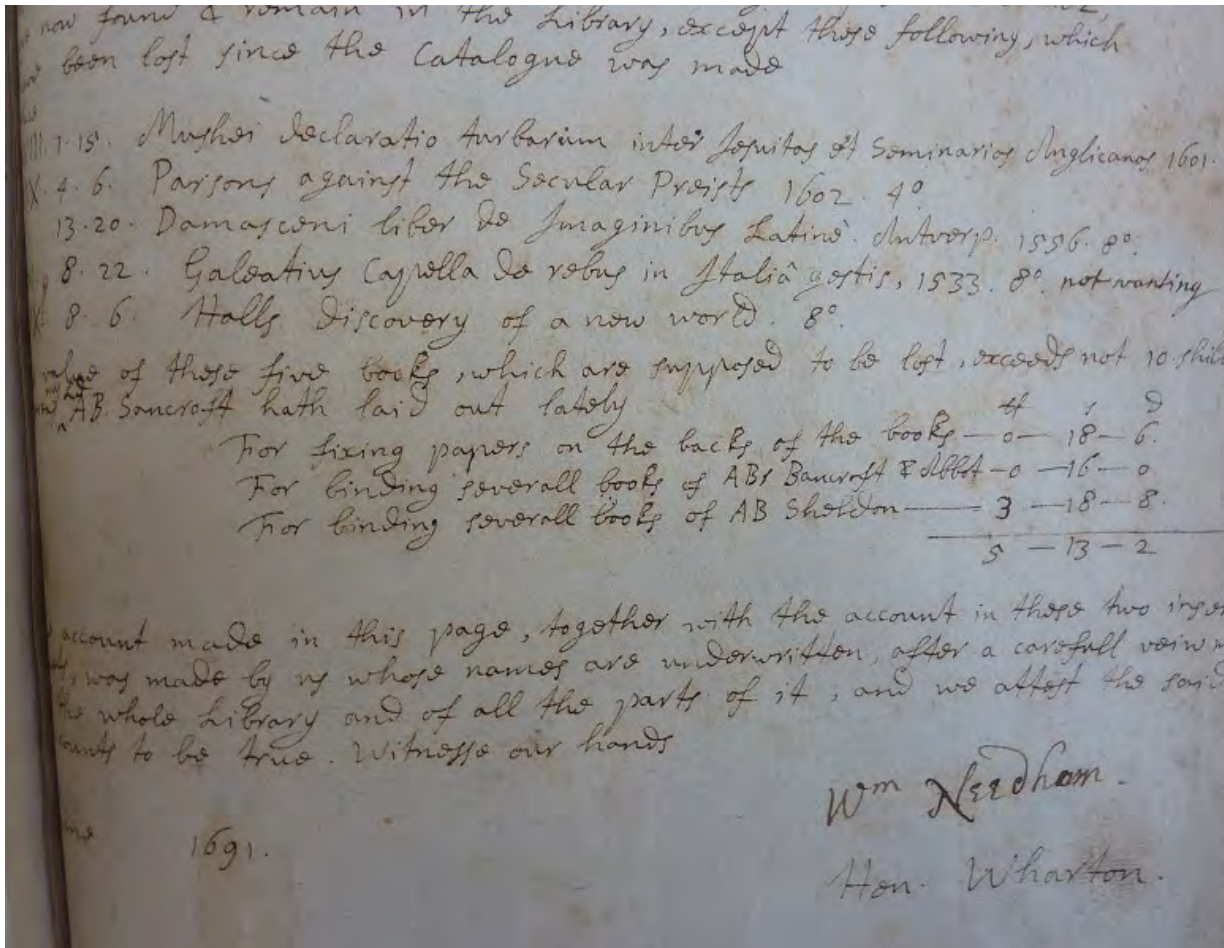 now found & remain in the Library, except these following, which
been lost since the Catalogue was made
1·15. Mushei declaratio turbarum inter Jesuitas et Seminarios Anglicanos 1601.
X. 4. 6. Parsons against the Secular Preists 1602. 4°
13·20. Damasceni liber de Imaginibus Latinè. Antverp. 1556. 8°.
8. 22. Galeatius Capella de rebus in Italiâ gestis, 1533. 8°. not wanting
8. 6. Halls discovery of a new world. 8°.
value of these five books, which are supposed to be lost, exceeds not 10. shill
AB. Sancroft hath laid out lately
ll s d
For fixing papers on the backs of the books — 0 — 18 — 6.
For binding severall books of ABs Bancroft & Abbot — 0 — 16 — 0
For binding severall books of AB Sheldon — 3 — 18 — 8.
5 — 13 — 2
account made in this page, together with the account in these two inser
was made by us whose names are underwritten, after a carefull veiw
the whole Library and of all the parts of it, and we attest the said
counts to be true. Witnesse our hands
Wm Needham.
1691.
Hen. Wharton.